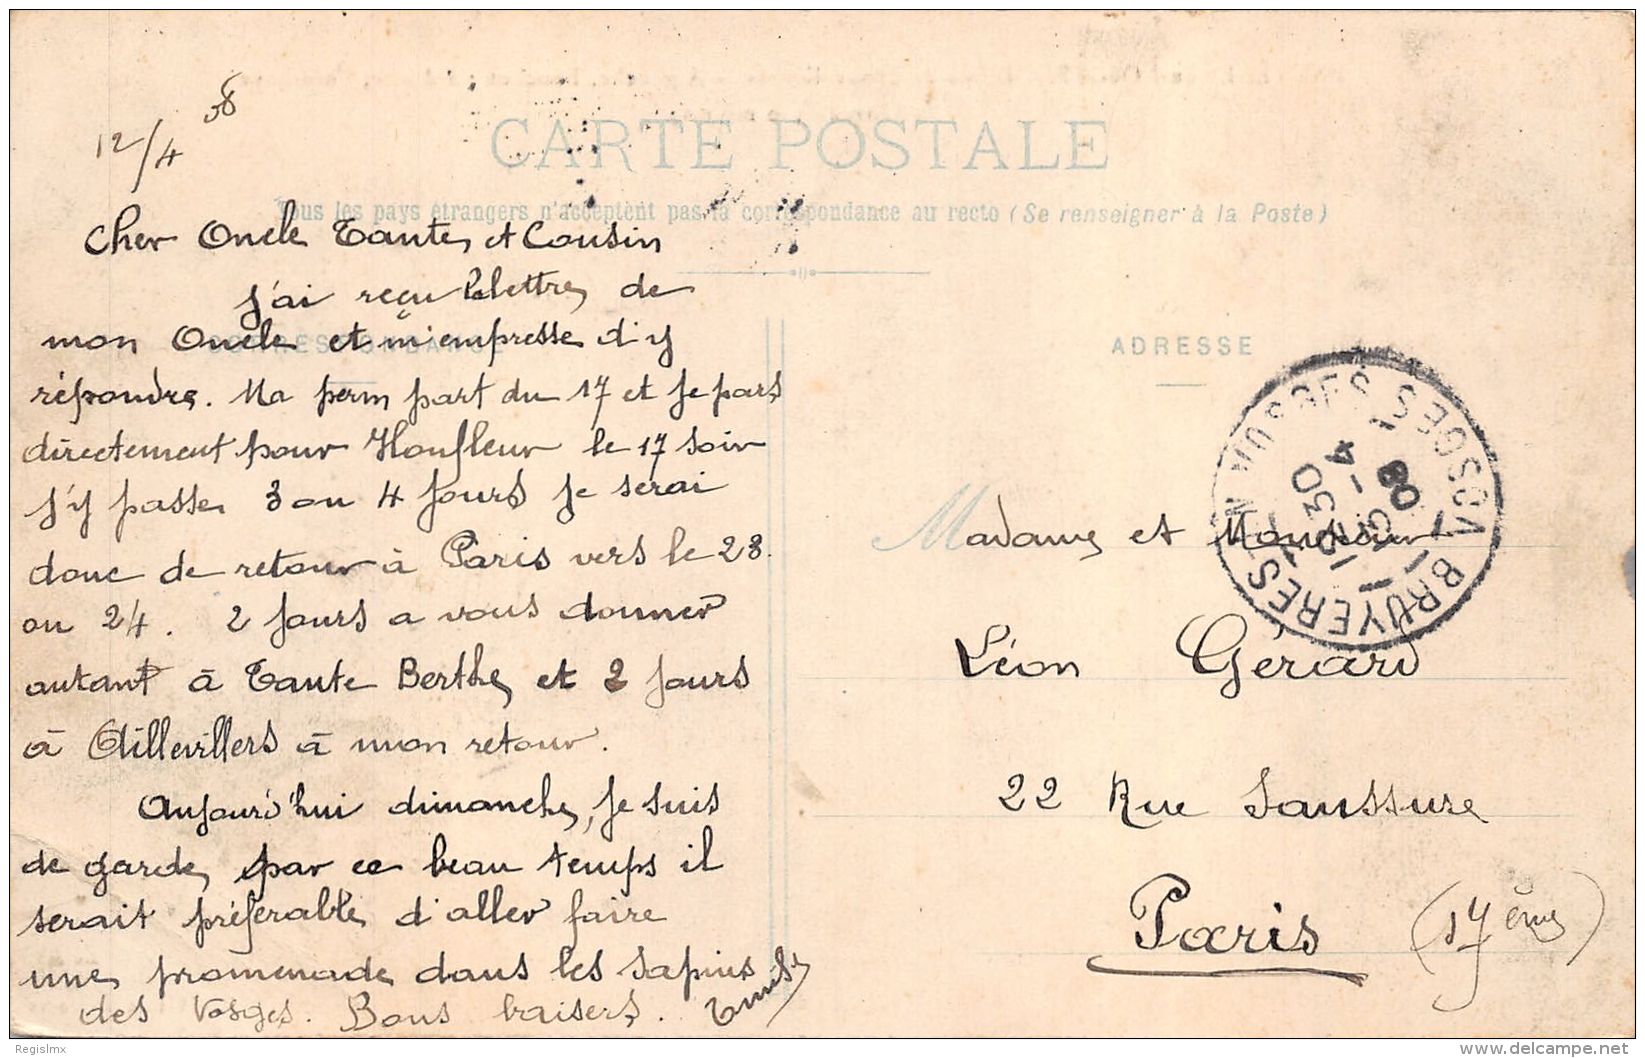 12/4 08
CARTE POSTALE
Tous les pays étrangers n'acceptent pas la correspondance au recto (Se renseigner à la Poste)
Cher Oncle Tante, et Cousin
J'ai reçu la lettre, de
mon Oncle et m'empresse d'y
répondre. Ma perm part du 17 et je pars
directement pour Honfleur le 17 soir
j'y passe 3 ou 4 jours je serai
donc de retour à Paris vers le 23.
ou 24. 2 jours a vous donner
autant à Tante Berthe, et 2 jours
à Aillevillers à mon retour.
Aujourd'hui dimanche, je suis
de garde, par ce beau temps il
serait préférable d'aller faire
une promenade dans les sapins
des Vosges. Bons baisers.
CORRESPONDANCE
ADRESSE
BRUYERES VOSGES
Madame et Monsieur
Léon Gérard
22 Rue Saussure
Paris (17ème)
Regislmx
delcampe.net